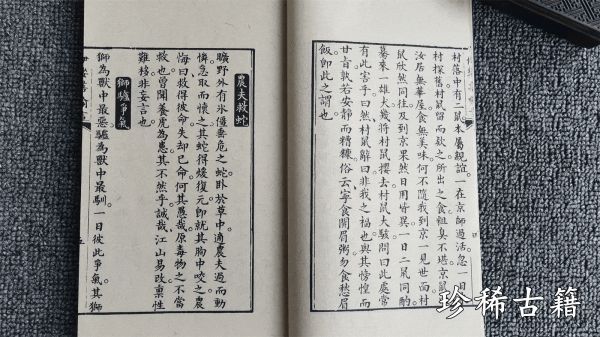 村落中有二鼠本屬親誼。一在京師過活。忽一日
村探舊村鼠留而欵之所出之食粗臭不堪京鼠
汝居無華屋食無美味何不隨我到京一見世面村
鼠欣然同往及到京果然日用皆異一日二鼠同酌
驀來一雄犬幾將村鼠攫去村鼠大駭問曰此處常
有此害乎曰然村鼠辭曰非我之福也與其悽惶而
甘旨孰若安静而糟糠俗云寧食開眉粥勿食愁眉
飯即此之謂也
農夫救蛇
曠野外有氷僵垂危之蛇卧於草中適農夫過而動
憐急取而懷之其蛇得煖復元即就其胸中咬之農
悔曰救得彼命失却己命何其愚哉原毒物之不當
救也曾聞養虎為患其不然乎誠哉江山易改禀性
難移非妄言也
獅驢爭氣
獅為獸中最惡驢為獸中最馴一日彼此爭氣其獅
珍稀古籍